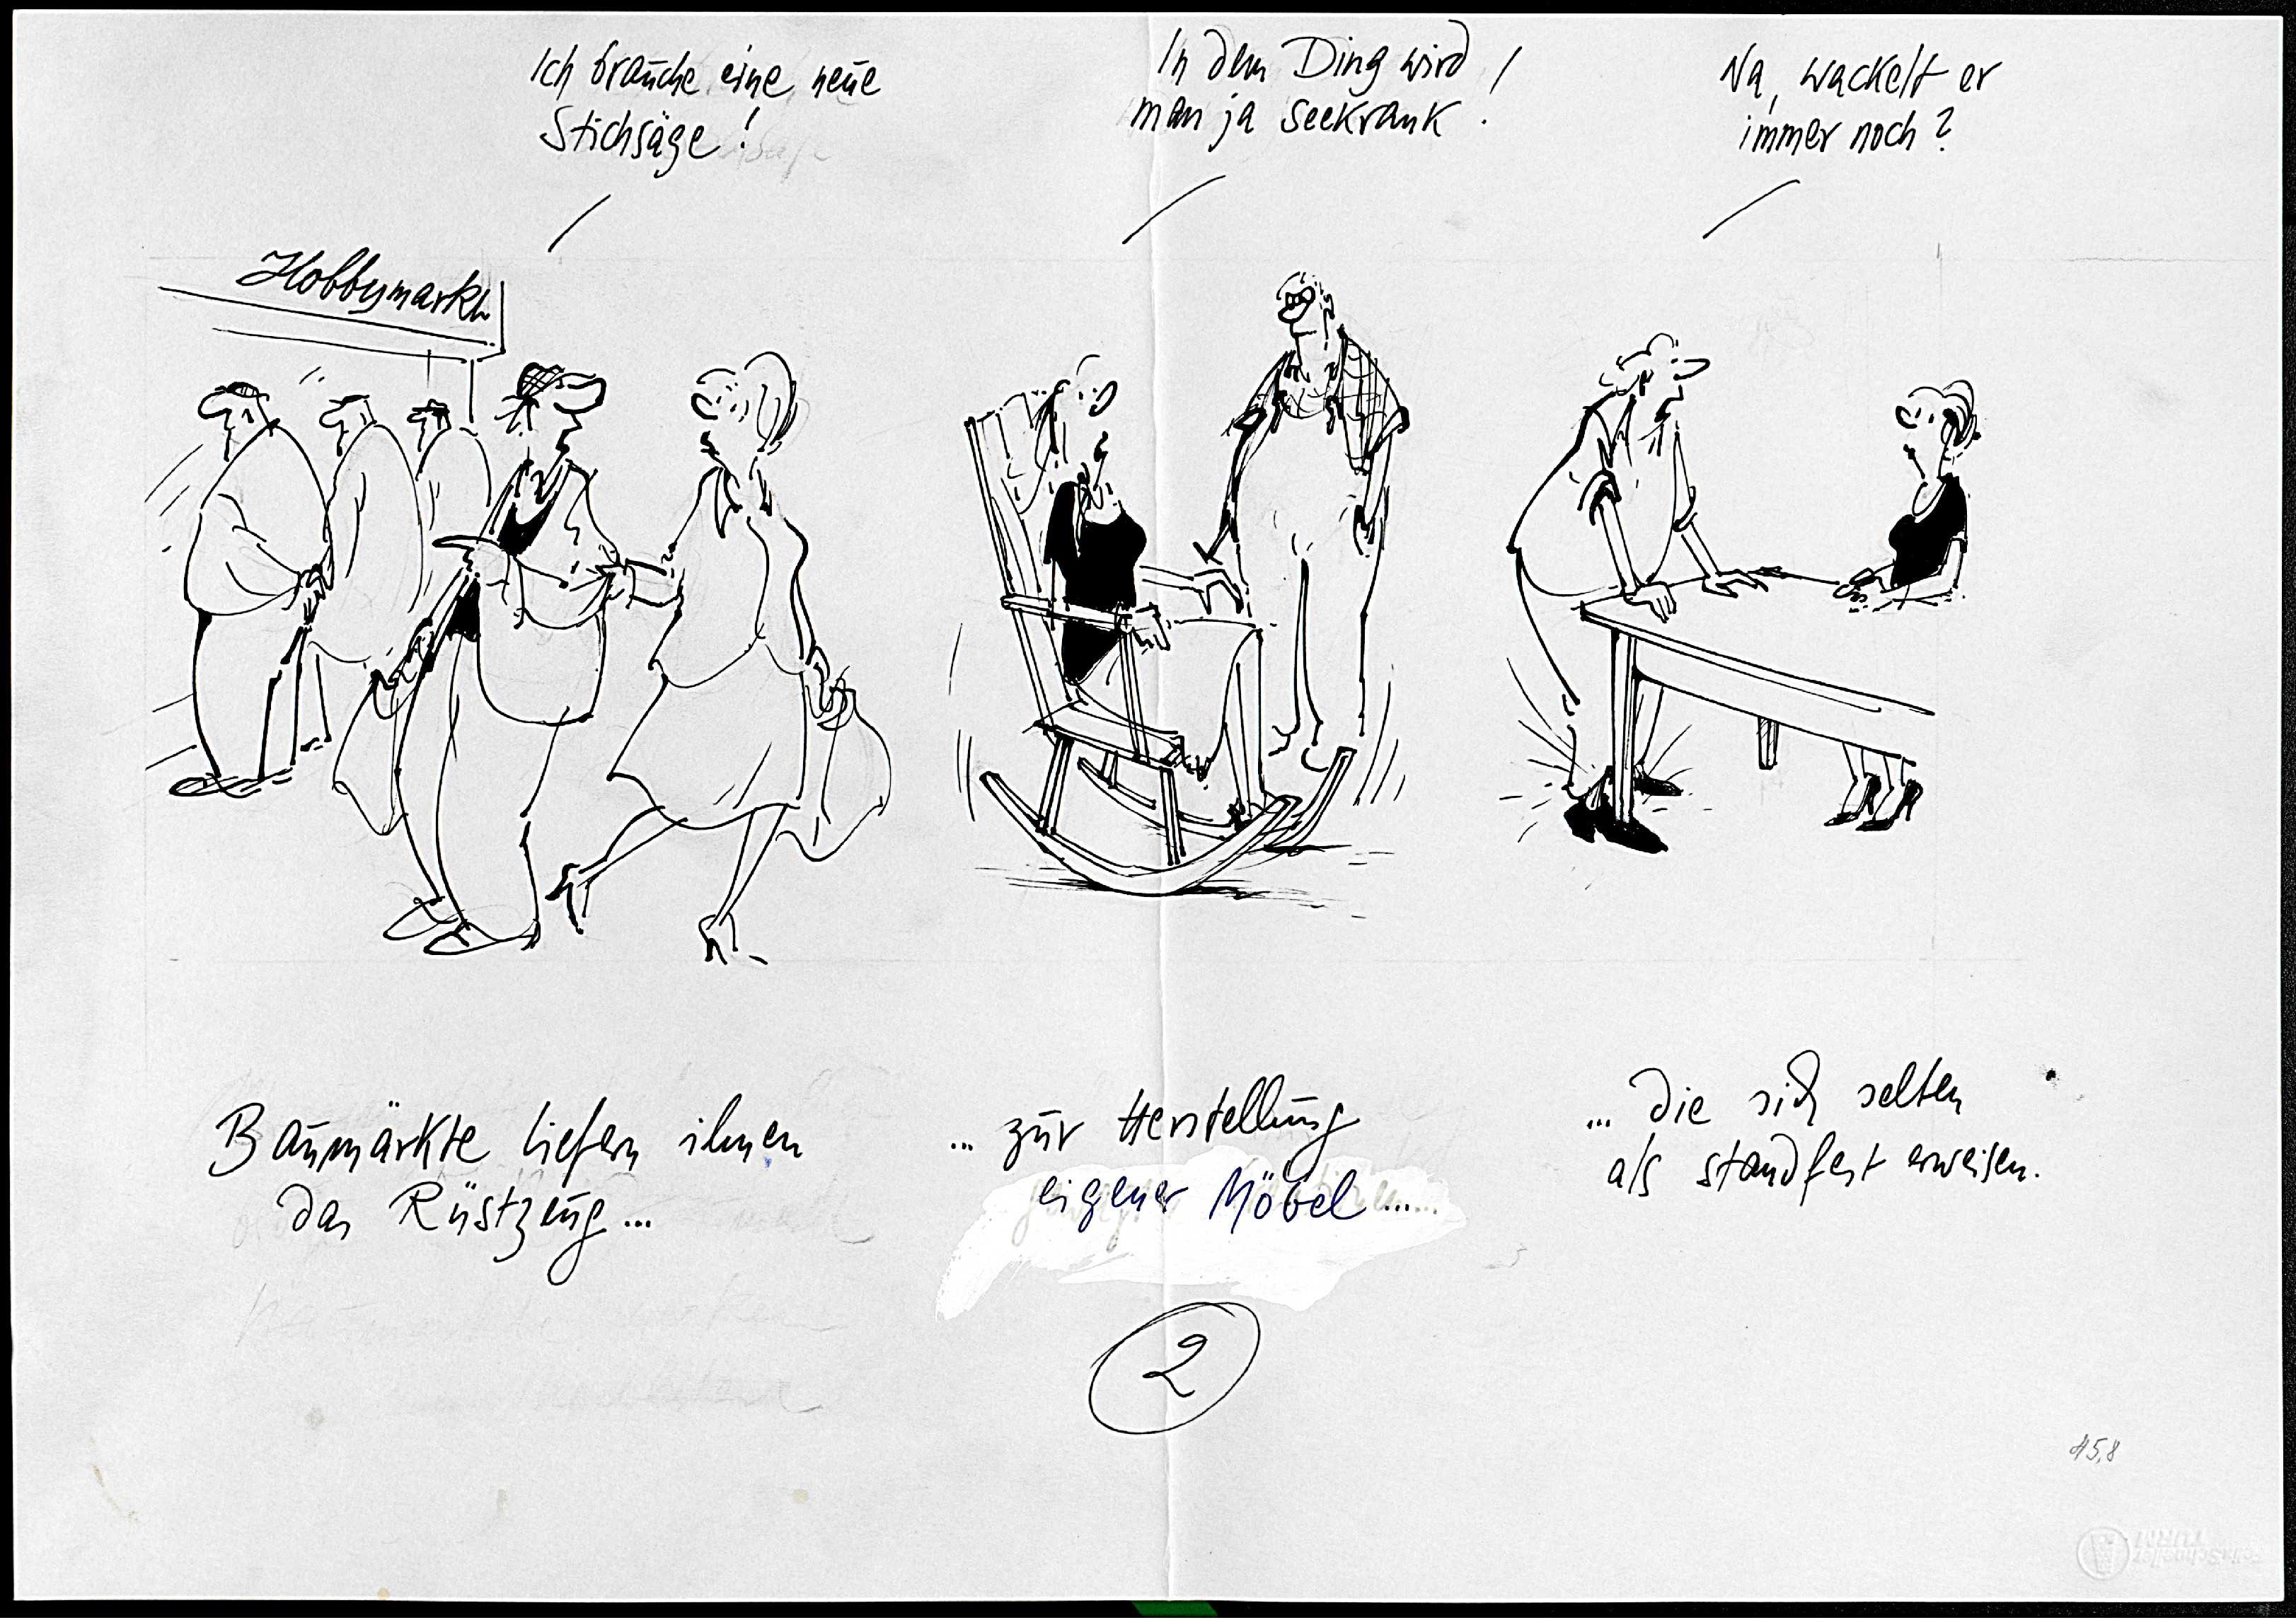 Ich brauche eine neue
Stichsäge!
In dem Ding wird
man ja seekrank!
Na, wackelt er
immer noch?
Hobbymarkt
Baumärkte liefern ihnen
das Rüstzeug...
... zur Herstellung
eigener Möbel......
... die sich selten
als standfest erweisen.
2
TURM